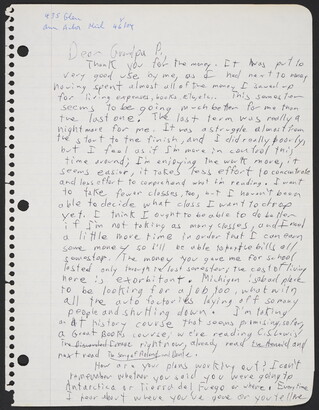 935 Glen
Ann Arbor Mich 48104
Dear Grandpa P.,
Thank you for the money. It was put to
very good use by me, as I had next to money
having spent almost all of the money I saved up
for living expenses, books, etc. This semester
seems to be going much better for me than
the last one. The last term was really a
nightmare for me. It was a struggle almost from
the start to the finish, and I did really poorly,
but I feel as if I'm more in control this
time around; I'm enjoying the work more, it
seems easier, it takes less effort to concentrate
and less effort to comprehend what I'm reading. I want
to take fewer classes, too, but I haven't been
able to decide what class I want to drop
yet. I think I ought to be able to do better
if I'm not taking as many classes, and I need
a little more time in order that I can earn
some money so I'll be able to pay bills
The money you gave me for school
lasted only through last semester; the cost of living
here is exorbitant. Michigan is a bad place
to be looking for a job too, what with
all the auto factories laying off so many
people and shutting down. I'm taking
an history course that seems promising, also
a Great Books course, we're reading
right now, already read the Aeneid and
next read The Song of Roland and Dante.
How are your plans working out? I can't
remember whether you said you were going to
Antarctica or Tierra del Fuego or where. Everytime
I hear about where you've gone or you tell me